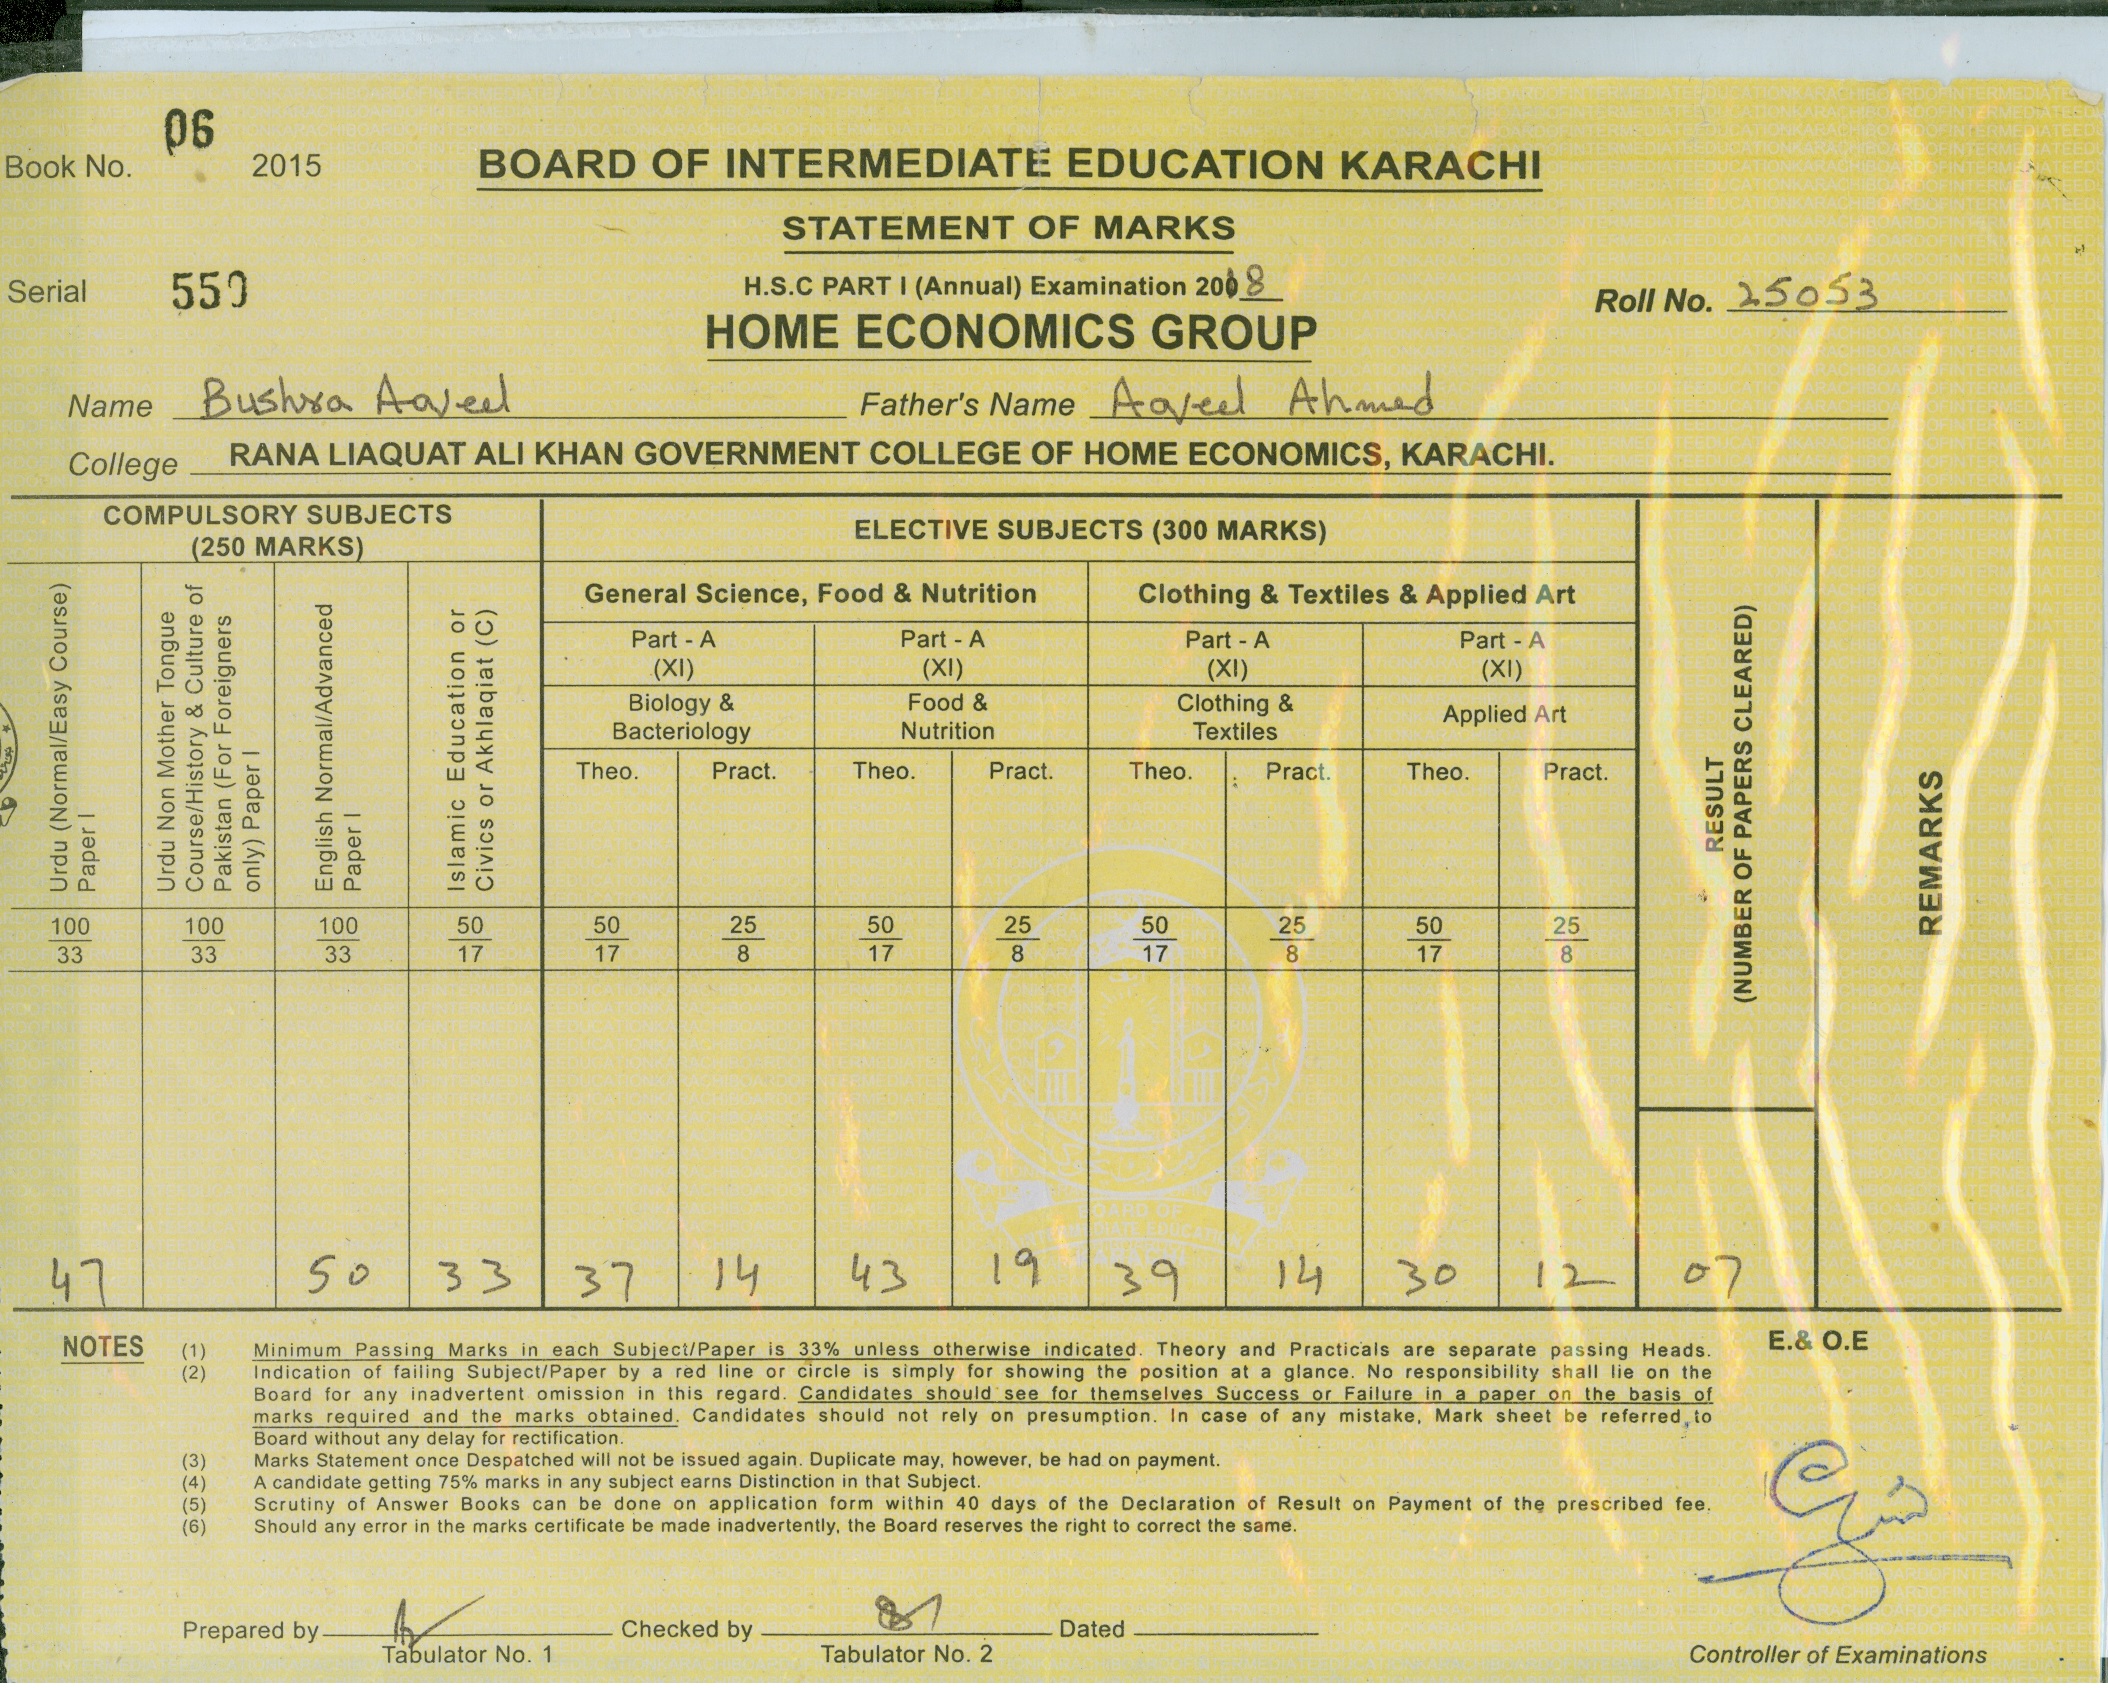 06
Book No. 2015 BOARD OF INTERMEDIATE EDUCATION KARACHI
STATEMENT OF MARKS
Serial 550 H.S.C PART I (Annual) Examination 2018 Roll No. 25053
HOME ECONOMICS GROUP
Name Bushra Aqeel Father's Name Aqeel Ahmed
College RANA LIAQUAT ALI KHAN GOVERNMENT COLLEGE OF HOME ECONOMICS, KARACHI.
COMPULSORY SUBJECTS
(250 MARKS)
ELECTIVE SUBJECTS (300 MARKS)
General Science, Food & Nutrition Clothing & Textiles & Applied Art
Part - A Part - A Part - A Part - A
(XI) (XI) (XI) (XI)
Biology & Food & Clothing & Applied Art
Bacteriology Nutrition Textiles
Theo. Pract. Theo. Pract. Theo. Pract. Theo. Pract.
Urdu (Normal/Easy Course)
Paper I
Urdu Non Mother Tongue
Course/History & Culture of
Pakistan (For Foreigners
only) Paper I
English Normal/Advanced
Paper I
Islamic Education or
Civics or Akhlaqiat (C)
RESULT
(NUMBER OF PAPERS CLEARED)
REMARKS
100 100 100 50 50 25 50 25 50 25 50 25
33 33 33 17 17 8 17 8 17 8 17 8
47 50 33 37 14 43 19 39 14 30 12 07
NOTES (1) Minimum Passing Marks in each Subject/Paper is 33% unless otherwise indicated. Theory and Practicals are separate passing Heads. E.& O.E
(2) Indication of failing Subject/Paper by a red line or circle is simply for showing the position at a glance. No responsibility shall lie on the
Board for any inadvertent omission in this regard. Candidates should see for themselves Success or Failure in a paper on the basis of
marks required and the marks obtained. Candidates should not rely on presumption. In case of any mistake, Mark sheet be referred to
Board without any delay for rectification.
(3) Marks Statement once Despatched will not be issued again. Duplicate may, however, be had on payment.
(4) A candidate getting 75% marks in any subject earns Distinction in that Subject.
(5) Scrutiny of Answer Books can be done on application form within 40 days of the Declaration of Result on Payment of the prescribed fee.
(6) Should any error in the marks certificate be made inadvertently, the Board reserves the right to correct the same.
Prepared by Checked by Dated
Tabulator No. 1 Tabulator No. 2 Controller of Examinations